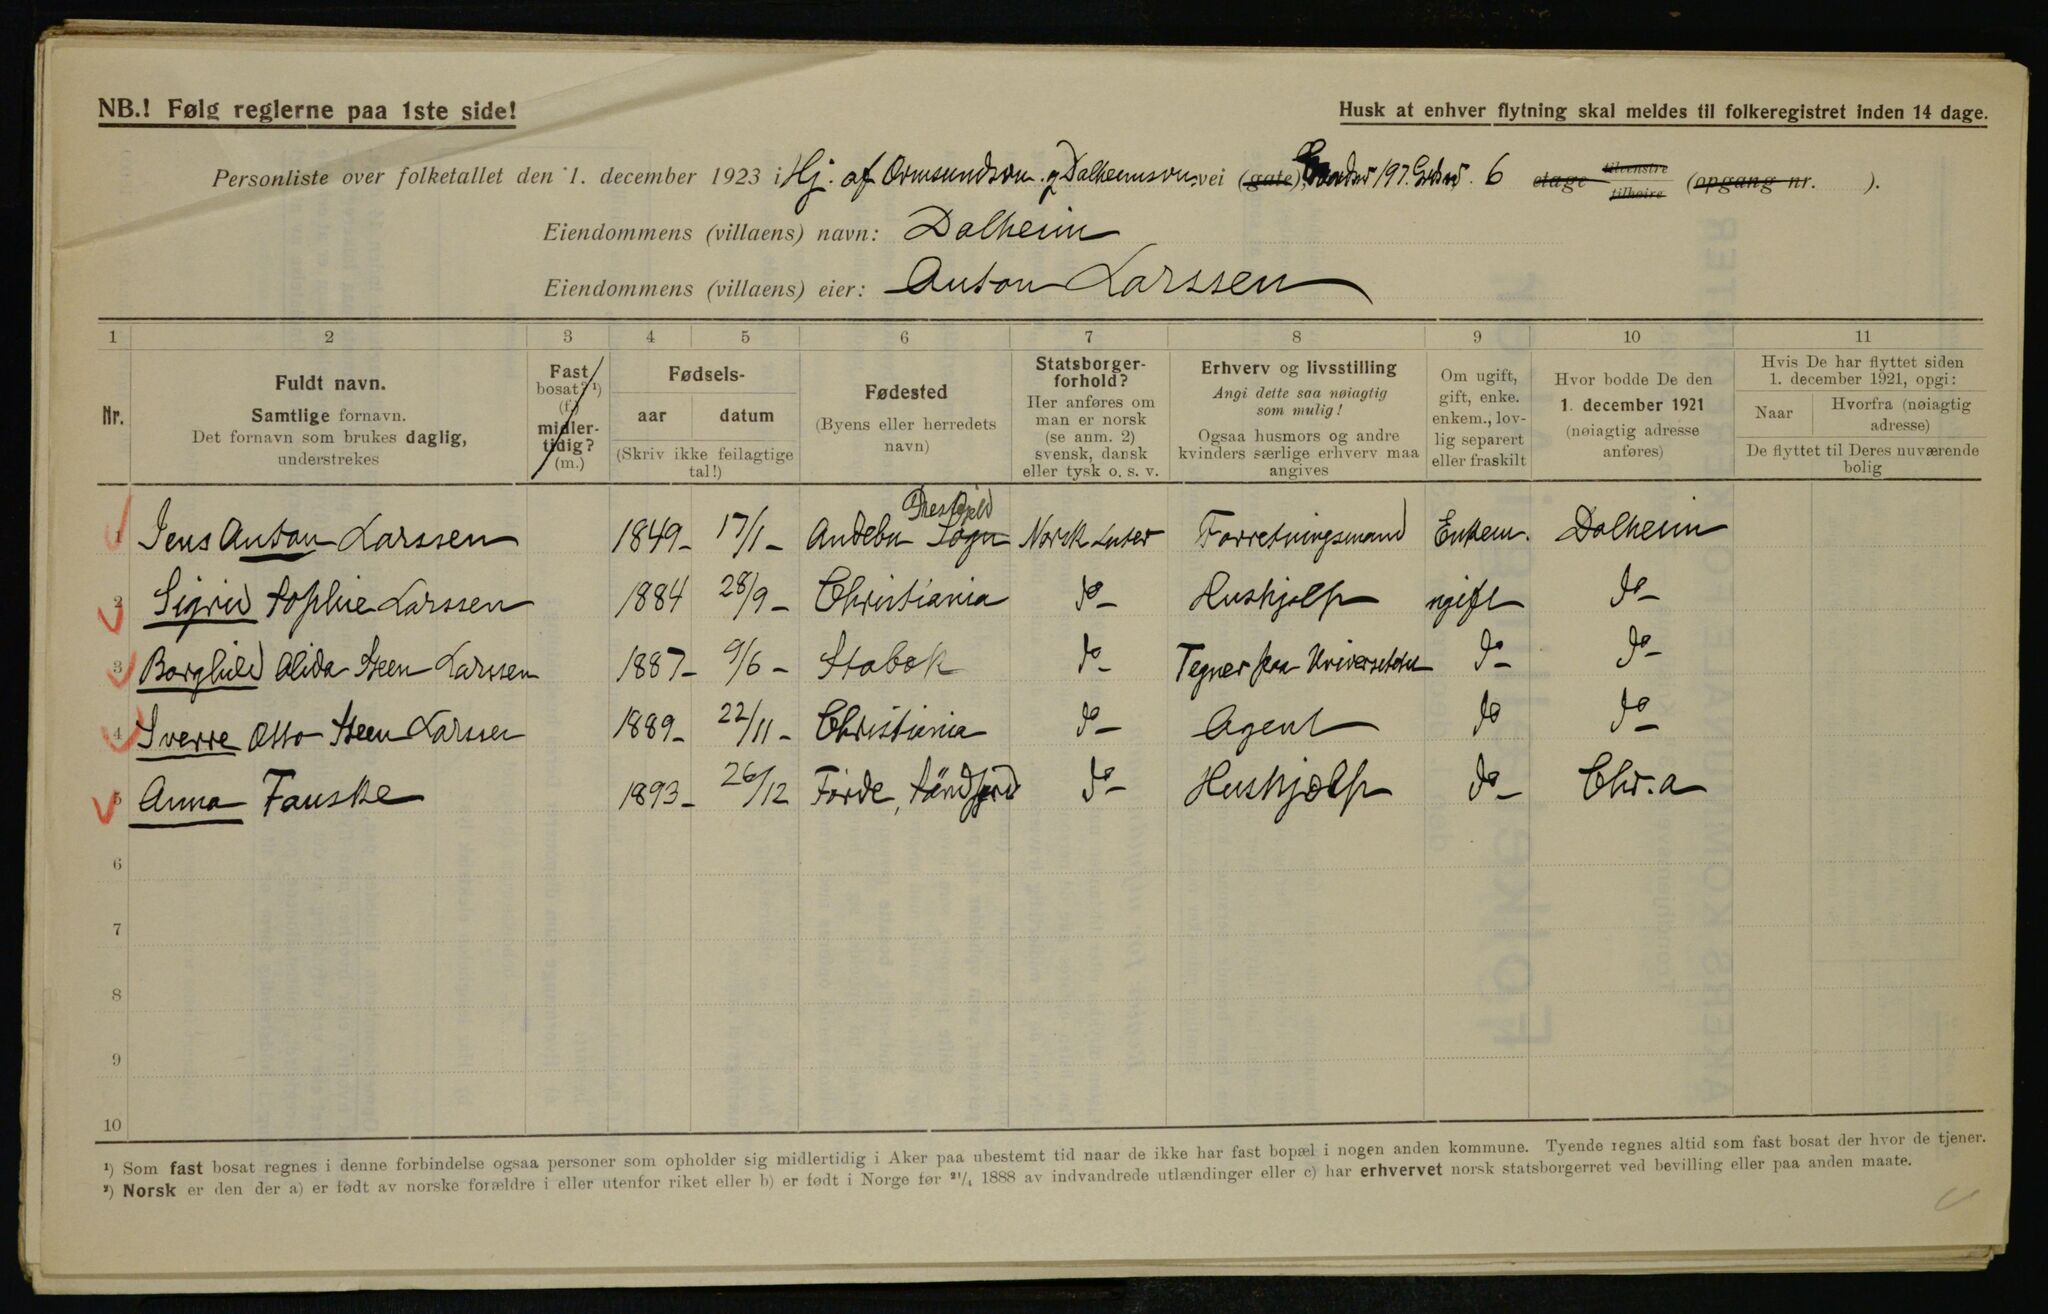 NB.! Følg reglerne paa 1ste side!
Husk at enhver flytning skal meldes til folkeregistret inden 14 dage.
Personliste over folketallet den 1. december 1923 i Hj. af Ormsundsvn. og Dalheimsvn. vei (gate) 197 6 etage tilvenstre tilhøire (opgang nr. ).
Eiendommens (villaens) navn: Dalheim
Eiendommens (villaens) eier: Anton Larssen
1 2 3 4 5 6 7 8 9 10 11
Nr.
Fuldt navn.
Samtlige fornavn.
Det fornavn som brukes daglig,
understrekes
Fast
bosat? ¹)
(f.)
midler-
tidig?
(m.)
Fødsels-
aar datum
(Skriv ikke feilagtige
tal!)
Fødested
(Byens eller herredets
navn)
Statsborger-
forhold?
Her anføres om
man er norsk
(se anm. 2)
svensk, dansk
eller tysk o. s. v.
Erhverv og livsstilling
Angi dette saa nøiagtig
som mulig!
Ogsaa husmors og andre
kvinders særlige erhverv maa
angives
Om ugift,
gift, enke.
enkem., lov-
lig separert
eller fraskilt
Hvor bodde De den
1. december 1921
(nøiagtig adresse
anføres)
Hvis De har flyttet siden
1. december 1921, opgi:
Naar Hvorfra (nøiagtig
adresse)
De flyttet til Deres nuværende
bolig
Prestegjeld
1 Jens Anton Larssen 1849- 17/1- Andebu Sogn Norsk Forretningsmand Enkem. Dalheim
2 Sigrid Sophie Larssen 1884 28/9- Christiania do- Hushjælp ugift do-
3 Borghild Alida Steen Larssen 1887- 9/6- Stabæk do- Tegner paa Universitetet do- do-
4 Sverre Otto Steen Larssen 1889- 22/11- Christiania do- Agent do do-
5 Anna Fauske 1893- 26/12 Førde, Søndfjord do- Hushjælp do- Chr.a
6
7
8
9
10
¹) Som fast bosat regnes i denne forbindelse ogsaa personer som opholder sig midlertidig i Aker paa ubestemt tid naar de ikke har fast bopæl i nogen anden kommune. Tyende regnes altid som fast bosat der hvor de tjener.
²) Norsk er den der a) er født av norske forældre i eller utenfor riket eller b) er født i Norge før ²¹/₄ 1888 av indvandrede utlændinger eller c) har erhvervet norsk statsborgerret ved bevilling eller paa anden maate.